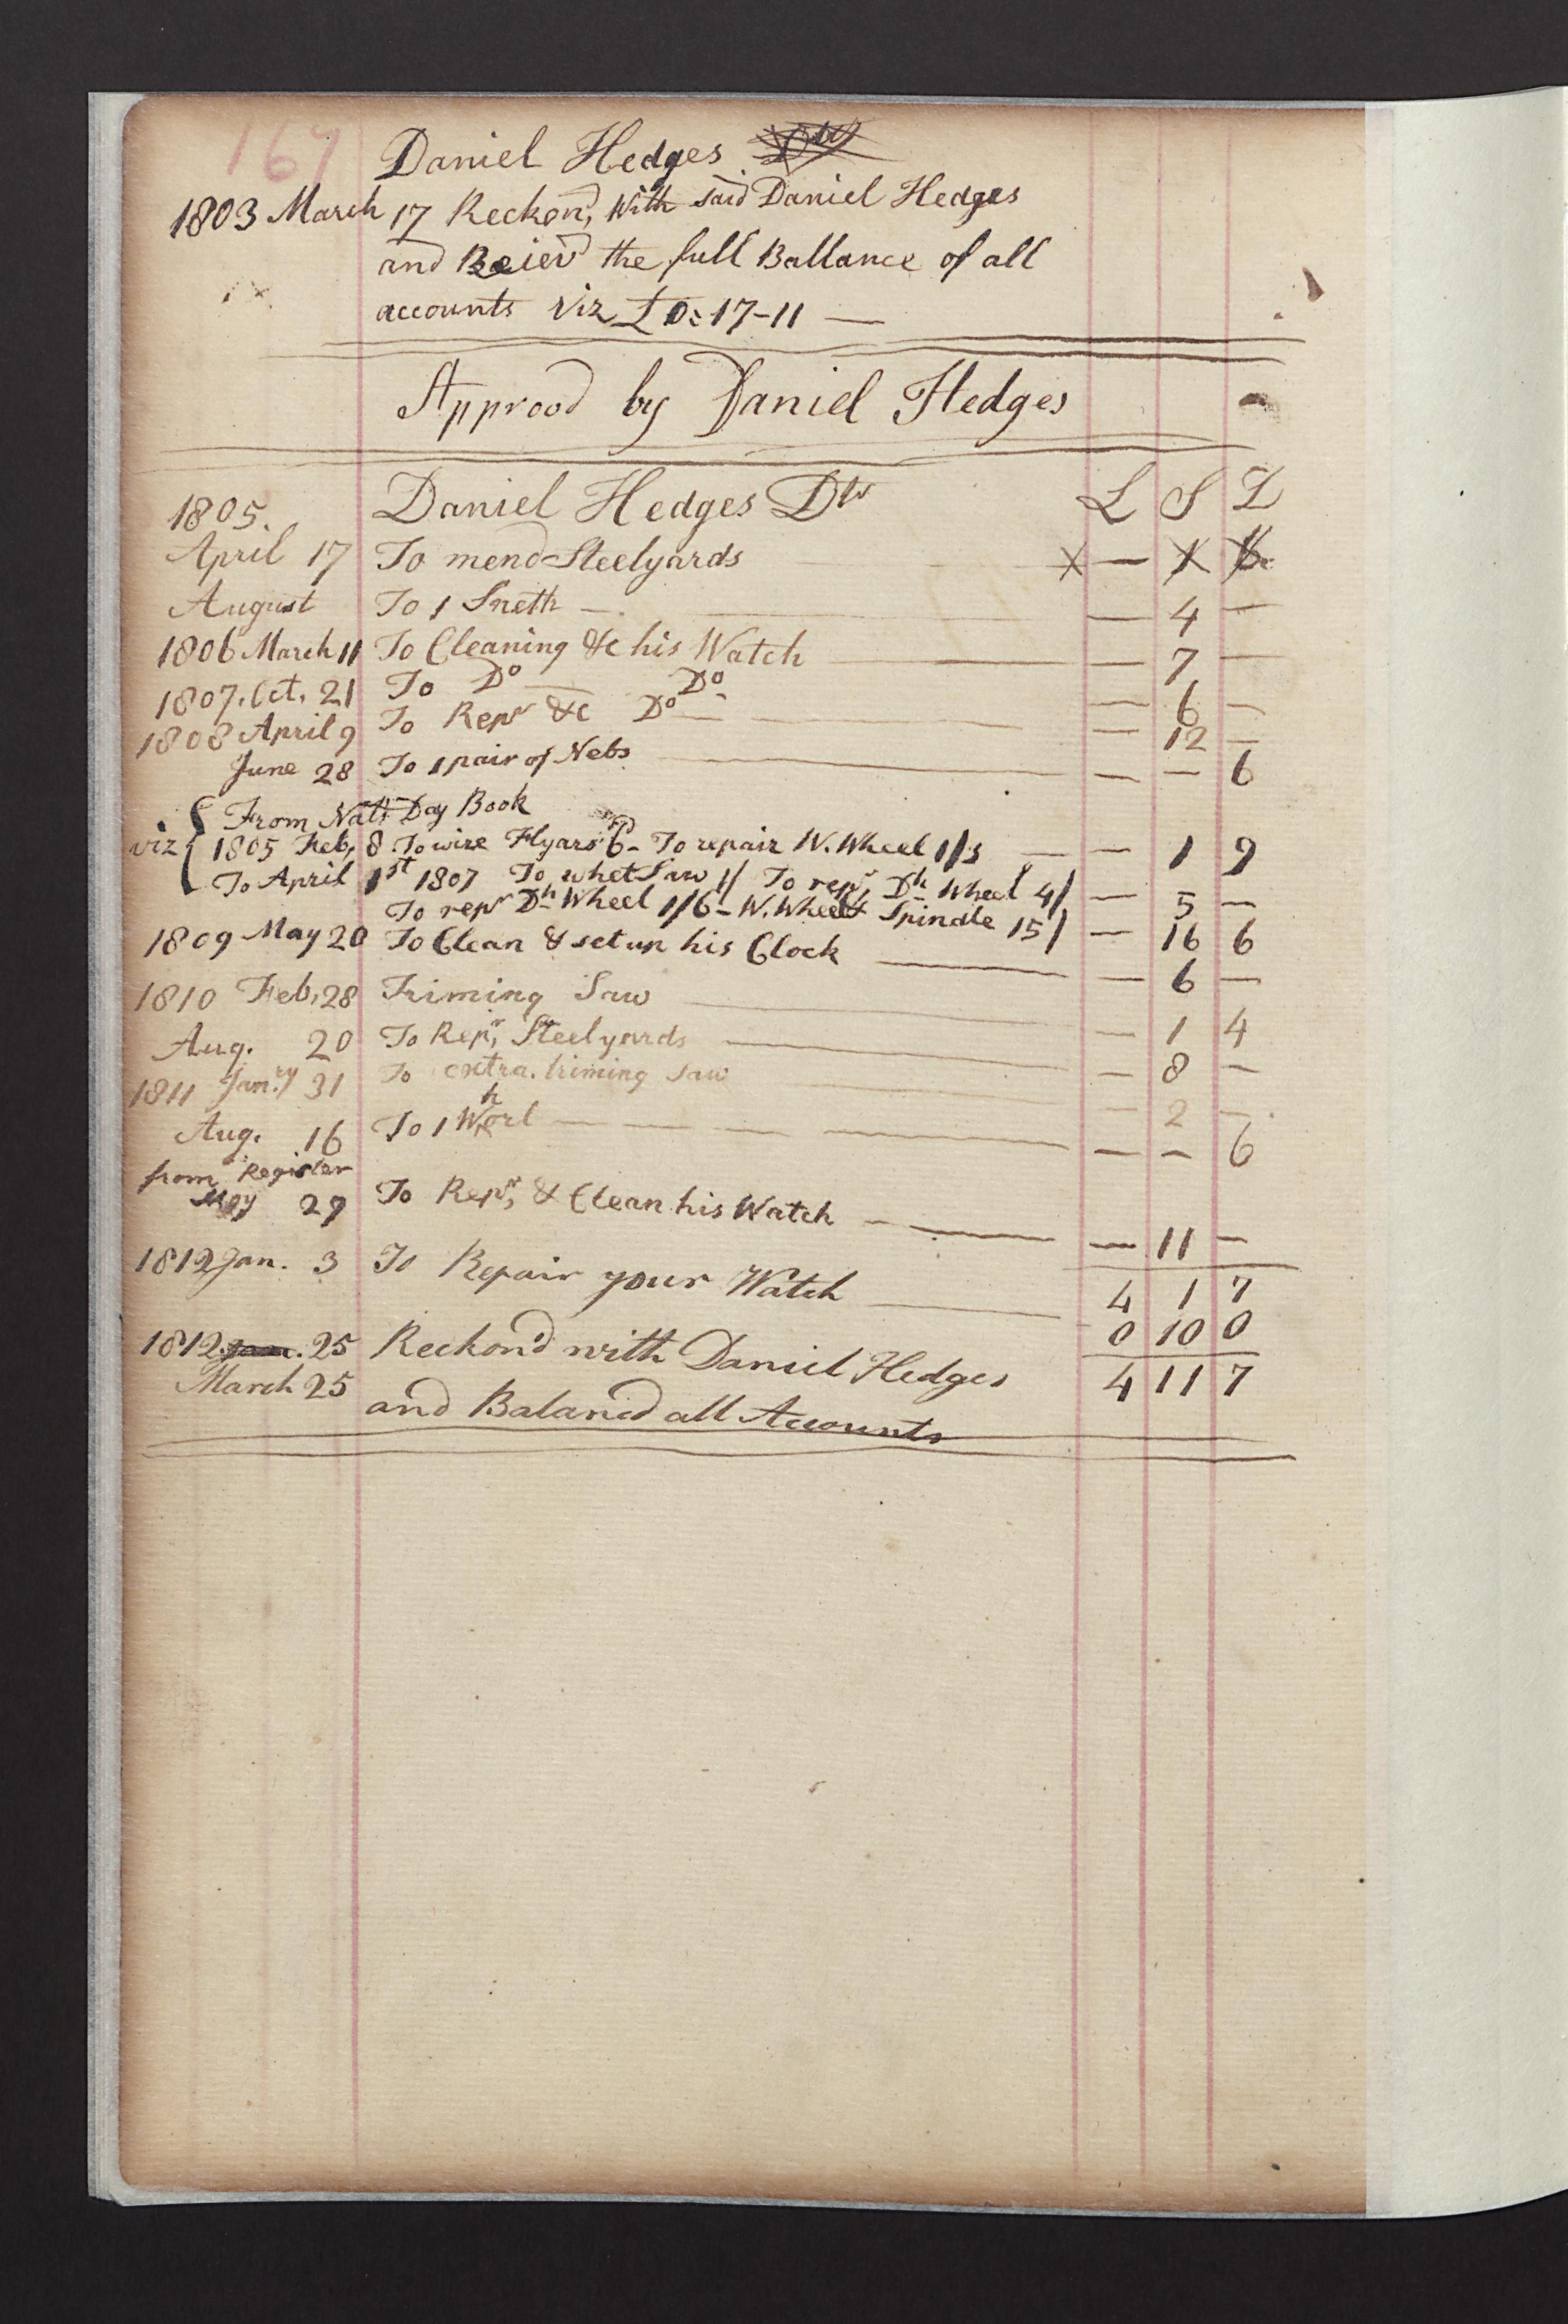 167
Daniel Hedges Dtr
1803 March 17 Reckond, with said Daniel Hedges
and Reievd the full Ballance of all
accounts viz £ 0:17-11 —
Approvd by Daniel Hedges
1805. Daniel Hedges Dtr L S D
April 17 To mend Steelyards X — 1 6
August To 1 Sneth — — 4 —
1806 March 11 To Cleaning &c his Watch — 7 —
1807. Oct. 21 To Do — Do — 6 —
1808 April 9 To Repr &c Do — — 12 —
June 28 To 1 pair of Nebs — — 6
From Natl Day Book
viz { 1805 Feb, 8 To wire Flyars 6d - To repair W. Wheel 1/3 — — 1 9
To April 1st 1807 To whet Saw 1/ To repr, Dh Wheel 4/ — 5 —
To repr Dh Wheel 1/6 - W. Wheel & Spindle 15/ — 16 6
1809 May 20 To Clean & set up his Clock — 6 —
1810 Feb, 28 Triming Saw — 1 4
Aug. 20 To Repr, Steelyards — 8 —
1811 Janry 31 To extra. triming saw — 2 —
Aug. 16 To 1 Whorl — — — — — 6
from Register
May 29 To Repr, & Clean his Watch — — 11 —
1812 Jan. 3 To Repair your Watch — 4 1 7
0 10 0
1812 Jan. 25 Reckond with Daniel Hedges
March 25 and Balancd all Accounts 4 11 7